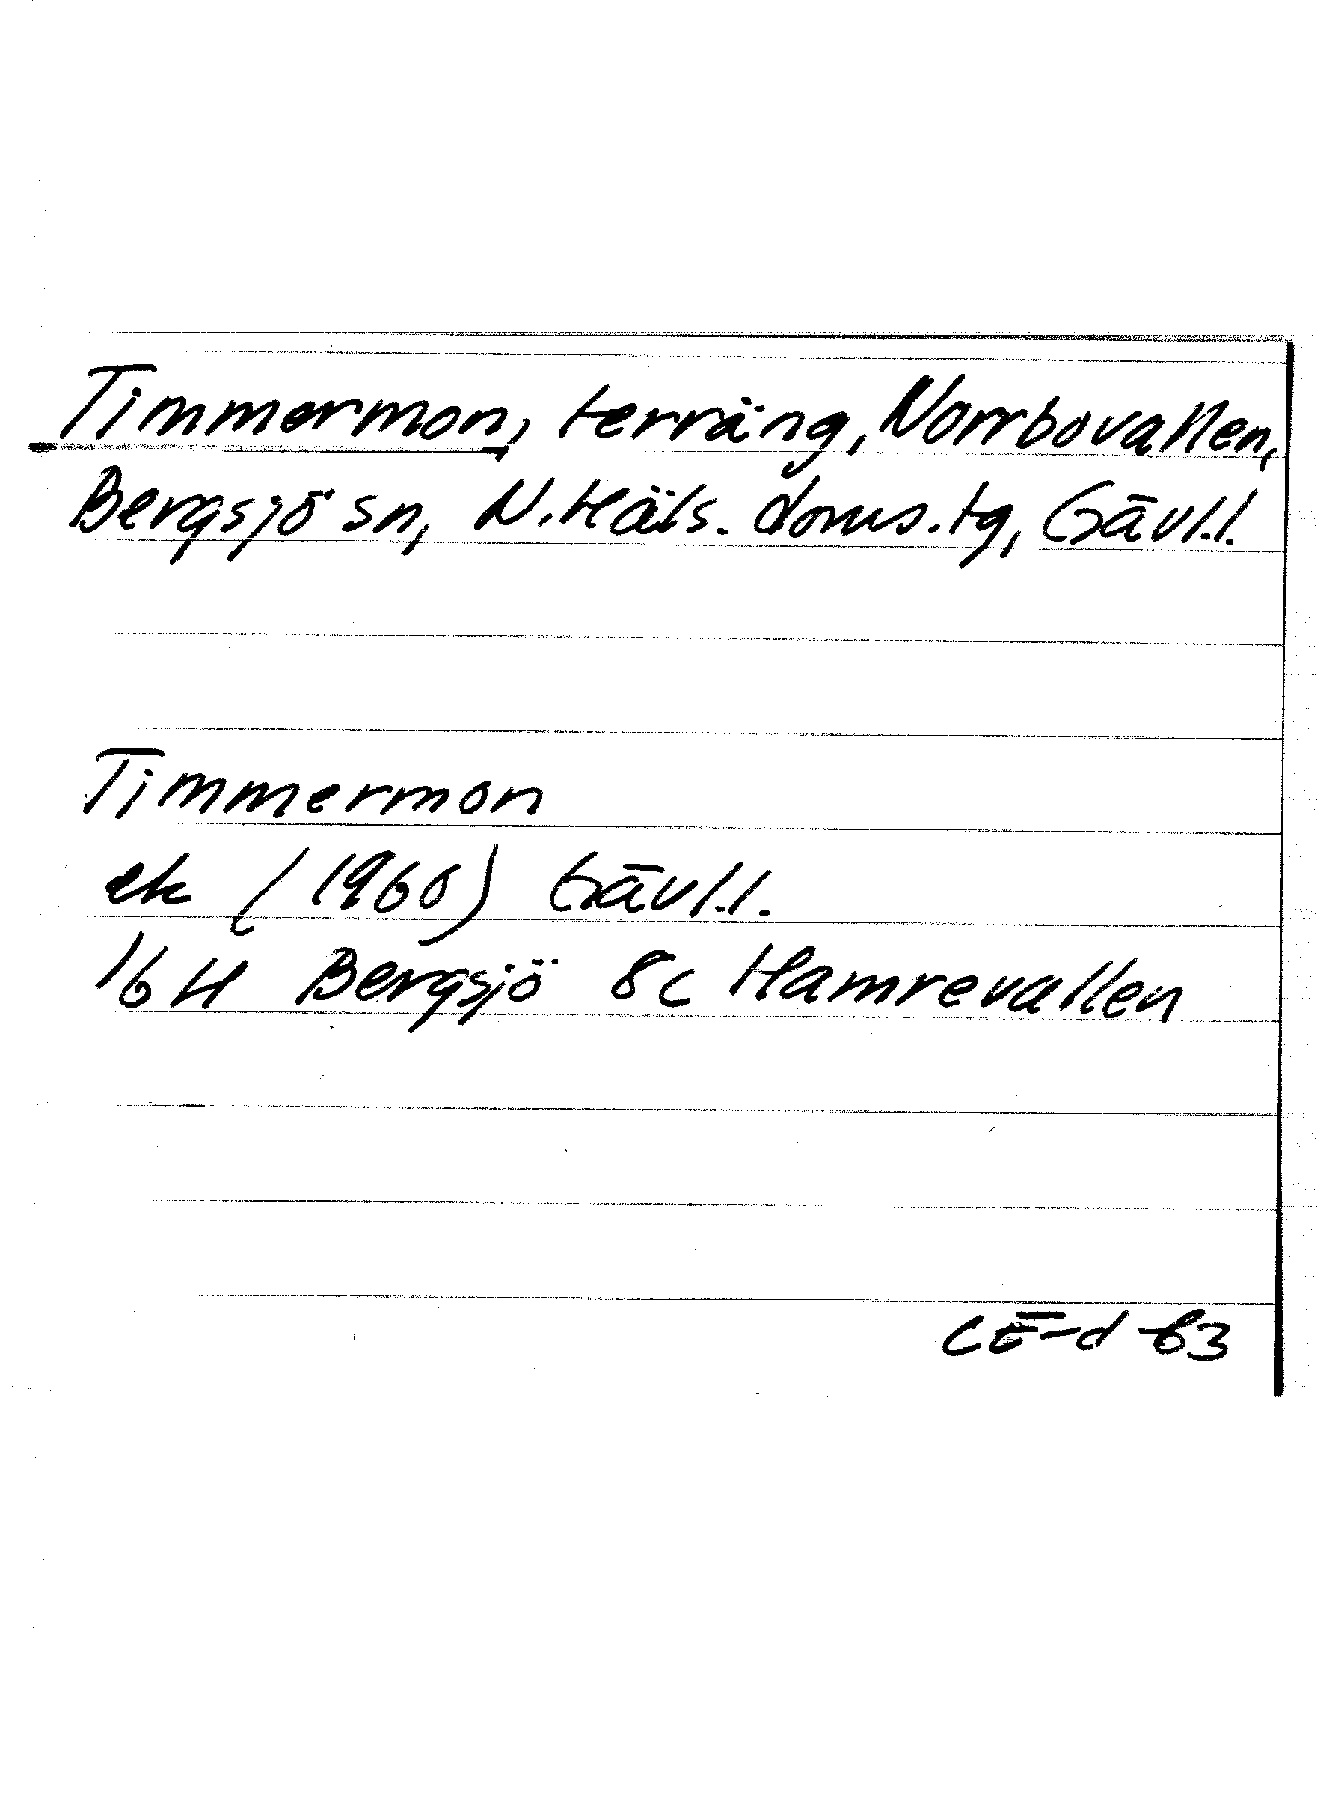 Timmermon, terräng, Norrbovallen,
Bergsjö sn, N. Häls. doms. tg, Gävl.l.
Timmermon
ek (1960) Gävl.l.
16H Bergsjö 8c Hamrevallen
CE-d -63